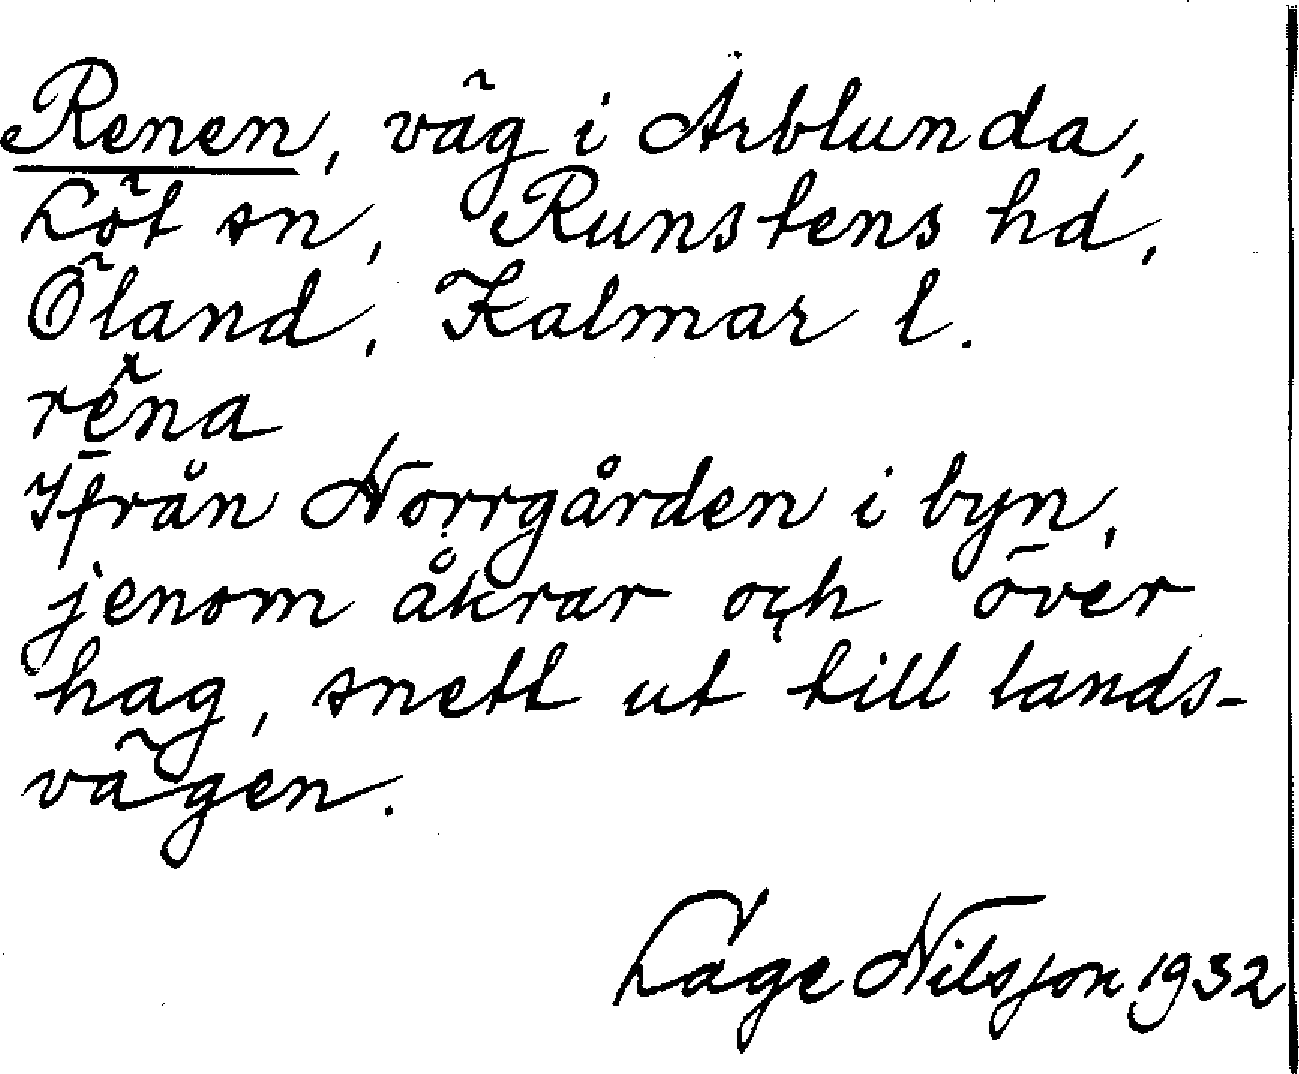 Renen, väg i Arblunda,
Löt sn, Runstens hd,
Öland, Kalmar l.
rena
Ifrån Norrgården i byn,
jenom åkrar och över
hag, snett ut till lands-
vägen.
Lage Nilsson 1932